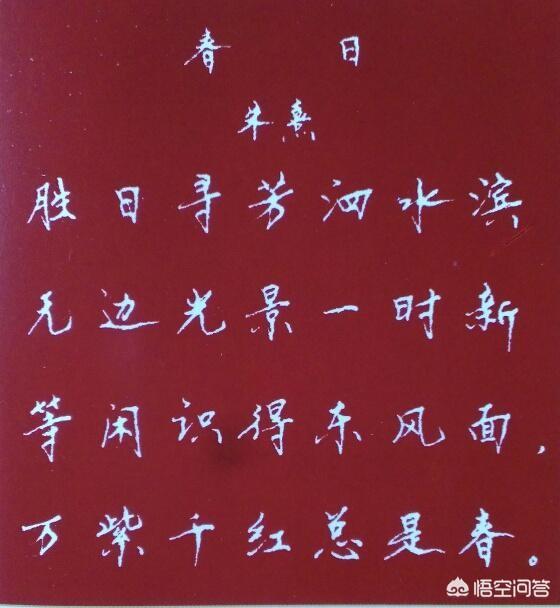 春 日
朱熹
胜日寻芳泗水滨
无边光景一时新
等闲识得东风面,
万紫千红总是春。
悟空问答